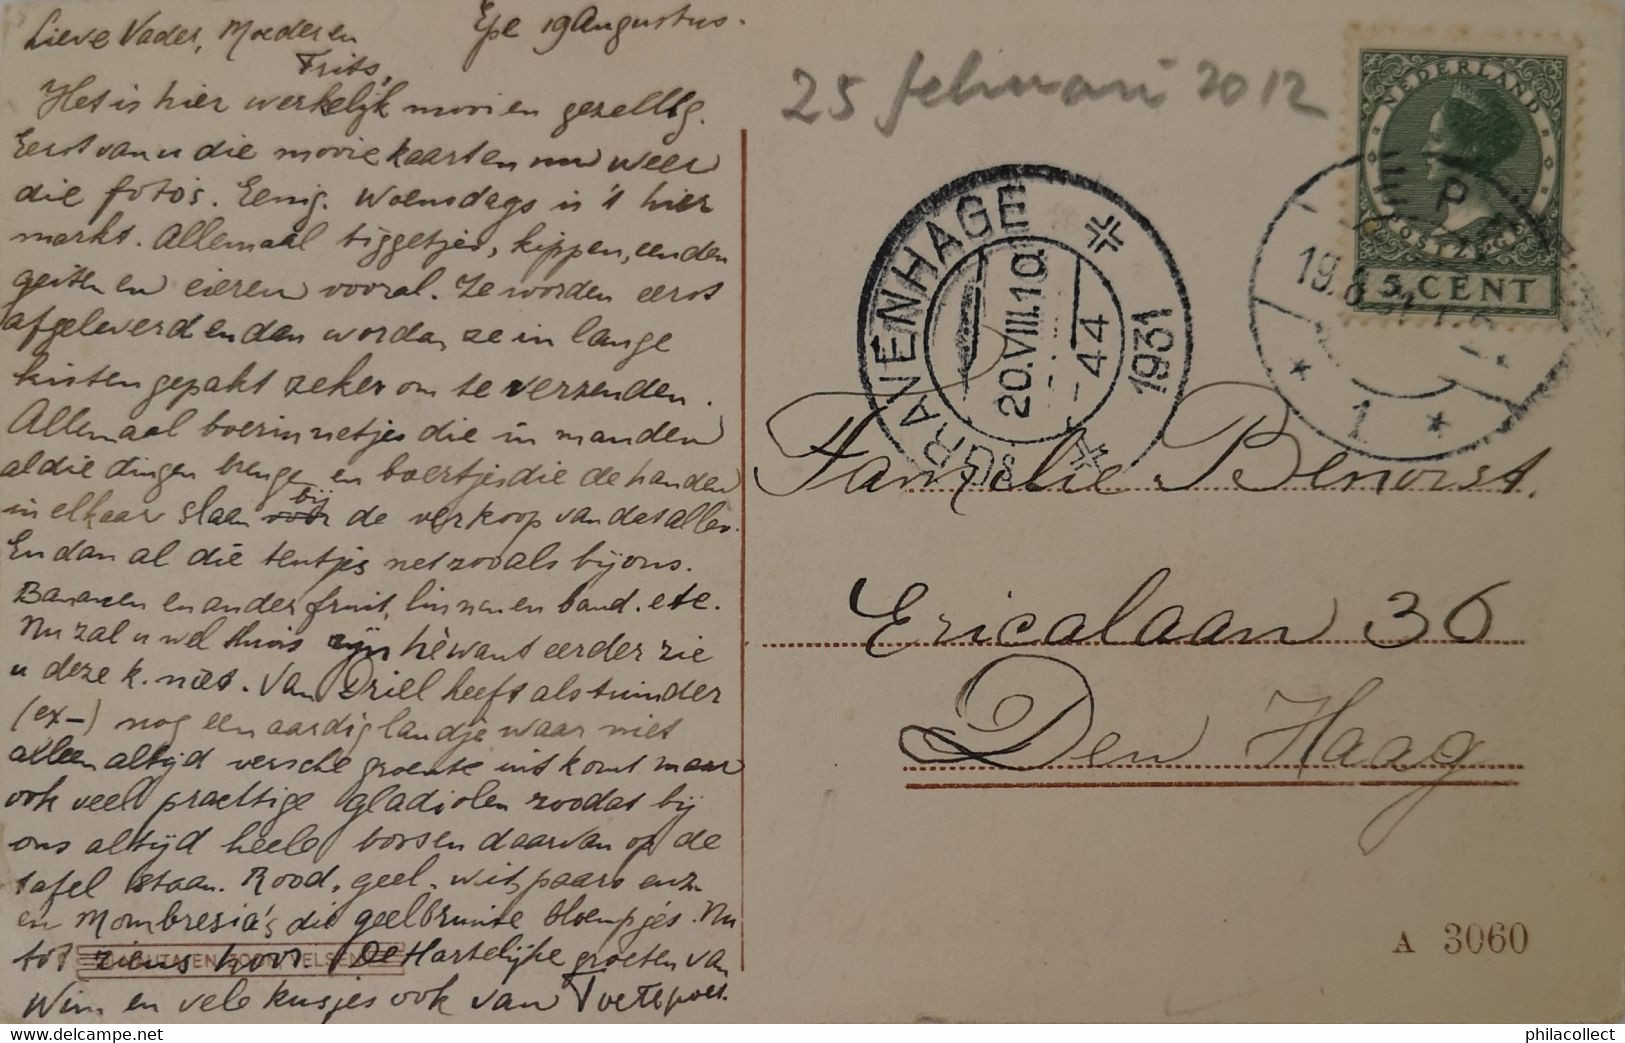 Epe 19 Augustus.
Lieve Vader, Moeder en
Frits,
Het is hier werkelijk mooi en gezellig.
Eerst van u die mooie kaarten nu weer
die foto's. Eenig. Woensdags is 't hier
markt. Allemaal biggetjes, kippen, eenden
geiten en eieren vooral. Ze worden eerst
afgeleverd en dan worden ze in lange
kisten gepakt zeker om te verzenden.
Allemaal boerinnetjes die in manden
al die dingen brengen en boertjes die de handen
in elkaar slaan bij de verkoop van dat alles.
En dan al die tentjes net zooals bij ons.
Bananen en ander fruit, linnen en band. etc.
Nu zal u wel thuis zijn hè want eerder zie
u deze k. niet. Van Driel heeft als tuinder
(ex-) nog een aardig landje waar niet
alleen altijd versche groente uit komt maar
ook veel prachtige gladiolen zoodat bij
ons altijd heele bossen daarvan op de
tafel staan. Rood, geel, wit, paars enz.
en Mombresia's die geelbruine bloempjes. Nu
tot ziens hoor. De Hartelijke groeten van
Wim en vele kusjes ook van Toetepoet.
25 februari 2012
NEDERLAND
POSTZEGEL
5 CENT
'S GRAVENHAGE
20.VIII.10
44
1931
19.8
1
Familie Benorst.
Ericalaan 36
Den Haag
A 3060
philacollect